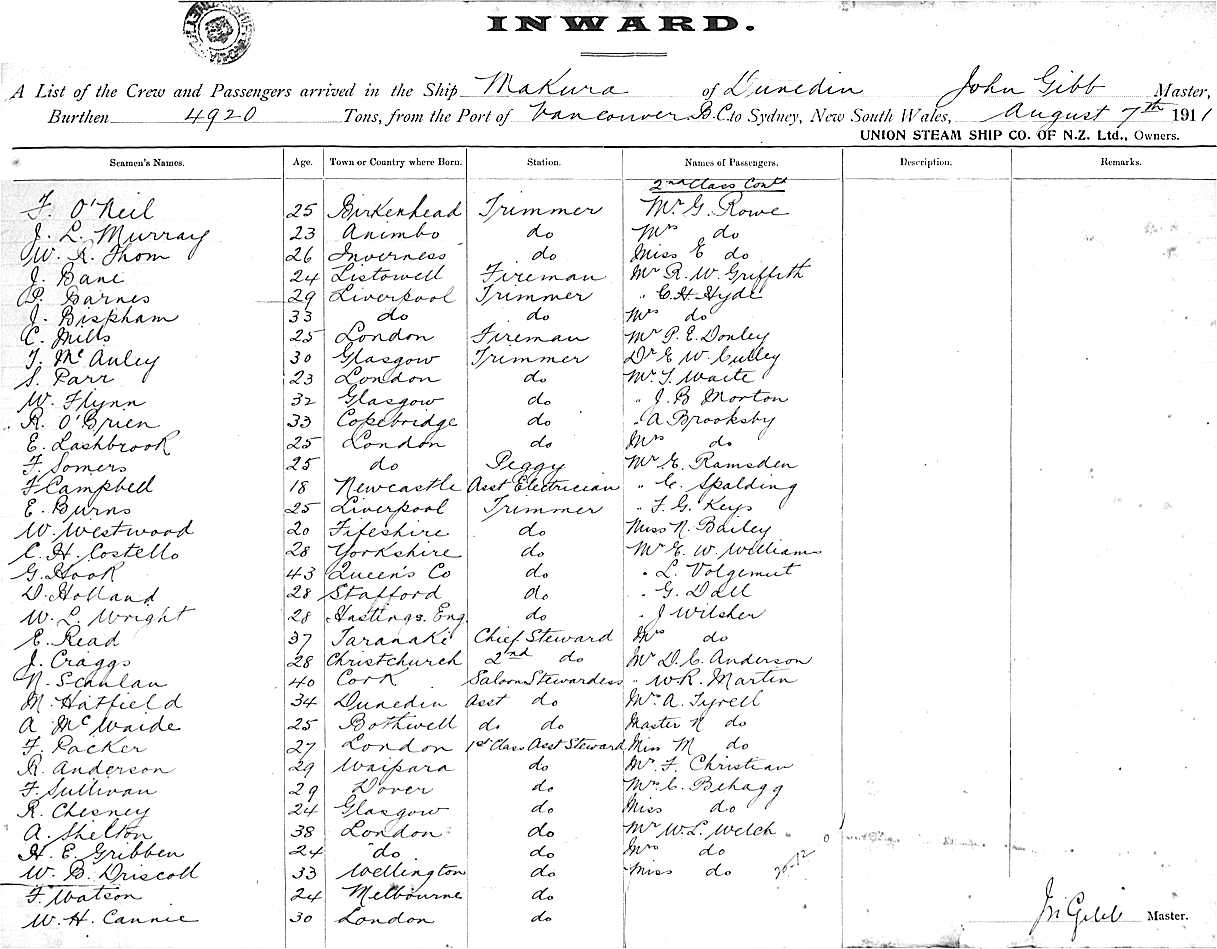 INWARD.
A List of the Crew and Passengers arrived in the Ship Makura of Dunedin John Gibb Master,
Burthen 4920 Tons, from the Port of Vancouver B.C. to Sydney, New South Wales, August 7th 1911
UNION STEAM SHIP CO. OF N.Z. Ltd., Owners.
Seamen's Names. Age. Town or Country where Born. Station. Names of Passengers. Description. Remarks.
2nd Class Contd
F. O'Neil 25 Birkenhead Trimmer Mr G. Rowe
J. L. Murray 23 Animbo do Mrs do
W. R. Thom 26 Inverness do Miss E do
J. Bane 24 Listowell Fireman Mr R. W. Griffith
P. Barnes 29 Liverpool Trimmer " C. H. Hyde
J. Bispham 33 do do Mrs do
C. Mills 25 London Fireman Mr P. E. Donley
T. McAuley 30 Glasgow Trimmer Dr E W Culley
S. Parr 23 London do Mr T. Waite
W. Flynn 32 Glasgow do " J. B Morton
R. O'Brien 33 Copebridge do " A Brooksby
E. Lashbrook 25 London do Mrs do
F. Somers 25 do Peggy Mr E. Ramsden
F Campbell 18 Newcastle Asst Electrician " C. Spalding
E. Burns 25 Liverpool Trimmer " F. G. Keys
W. Westwood 20 Fifeshire do Miss N. Bailey
C. H. Costello 28 Yorkshire do Mr E. W. Williams
G. Hook 43 Queen's Co do " L. Volgemut
D. Holland 28 Stafford do " G. Dall
W. L. Wright 28 Hastings. Eng. do " J Wilsher
E. Read 37 Taranaki Chief Steward Mrs do
J. Craggs 28 Christchurch 2nd do Mr D. C. Anderson
N. Scanlan 40 Cork Saloon Stewardess " W. R. Martin
M. Hatfield 34 Dunedin Asst do Mrs A. Tyrell
A McWaide 25 Bothwell do do Master N do
F. Packer 27 London 1st Class Asst Steward Miss M do
R. Anderson 29 Waipara do Mr F. Christian
F. Sullivan 29 Dover do Mrs C. Behagg
R. Chesney 24 Glasgow do Miss do
A. Shelton 38 London do Mr W. L. Welch
H. E. Gribben 24 do do Mrs do
W. B. Driscoll 33 Wellington do Miss do
F. Watson 24 Melbourne do
W. H. Cannie 30 London do
Jn Gibb Master.